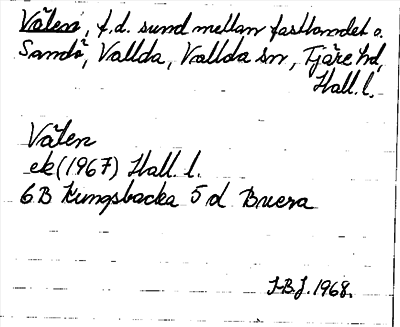 Välen, f.d. sund mellan fastlandet o.
Sandö, Vallda, Vallda sn, Fjäre hd,
Hall. l.
Välen
ek (1967) Hall. l.
6B Kungsbacka 5 d Buera
J.B.J. 1968.